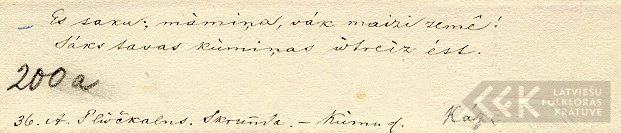 Es saku; māmiņa, vāk maizi zemê!
Sāks tavas kūmiņas ôtreiz ést.
200a
36. A. Plūčkalns. Skrunda. – Kūmu d.
LATVIEŠU
FOLKLORAS
KRĀTUVE